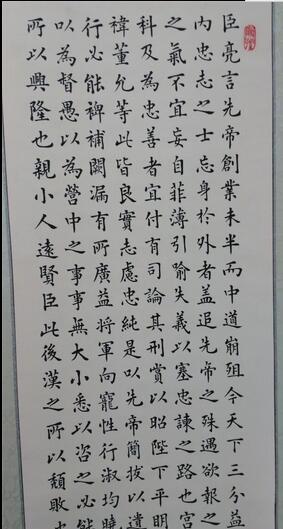 臣亮言先帝創業未半而中道崩殂今天下三分益
內忠志之士忘身於外者盖追先帝之殊遇欲報之
之氣不宜妄自菲薄引喻失義以塞忠諫之路也宮
科及為忠善者宜付有司論其刑賞以昭陛下平明
禕董允等此皆良實志慮忠純是以先帝簡拔以遺
行必能裨補闕漏有所廣益將軍向寵性行淑均曉
以為督愚以為營中之事事無大小悉以咨之必能
所以興隆也親小人遠賢臣此後漢之所以頹敗也